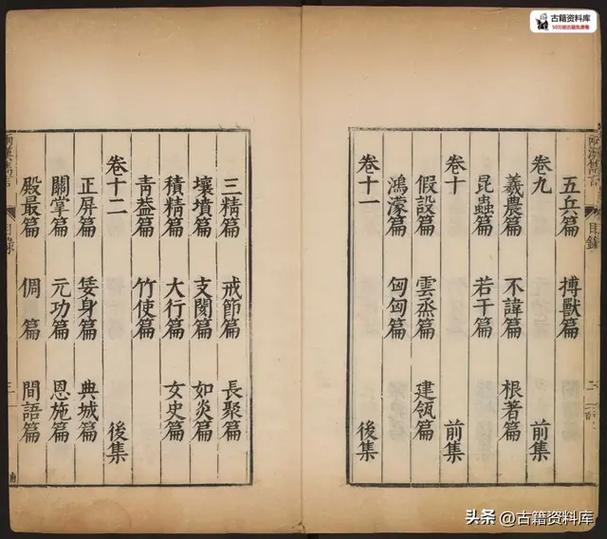 五兵篇 搏獸篇
卷九 前集
義農篇 不諱篇 根著篇
昆蟲篇 若干篇
卷十 前集
假設篇 雲烝篇 建瓴篇
鴻濛篇 匈匈篇
卷十一 後集
三精篇 戒節篇 長聚篇
壤墳篇 支閡篇 如炎篇
積精篇 大行篇 女史篇
青蓋篇 竹使篇
卷十二 後集
正屏篇 倭身篇 典城篇
關掌篇 元功篇 恩施篇
殿最篇 倜篇 間語篇
目錄
目錄 三
古籍资料库
头条 @古籍资料库